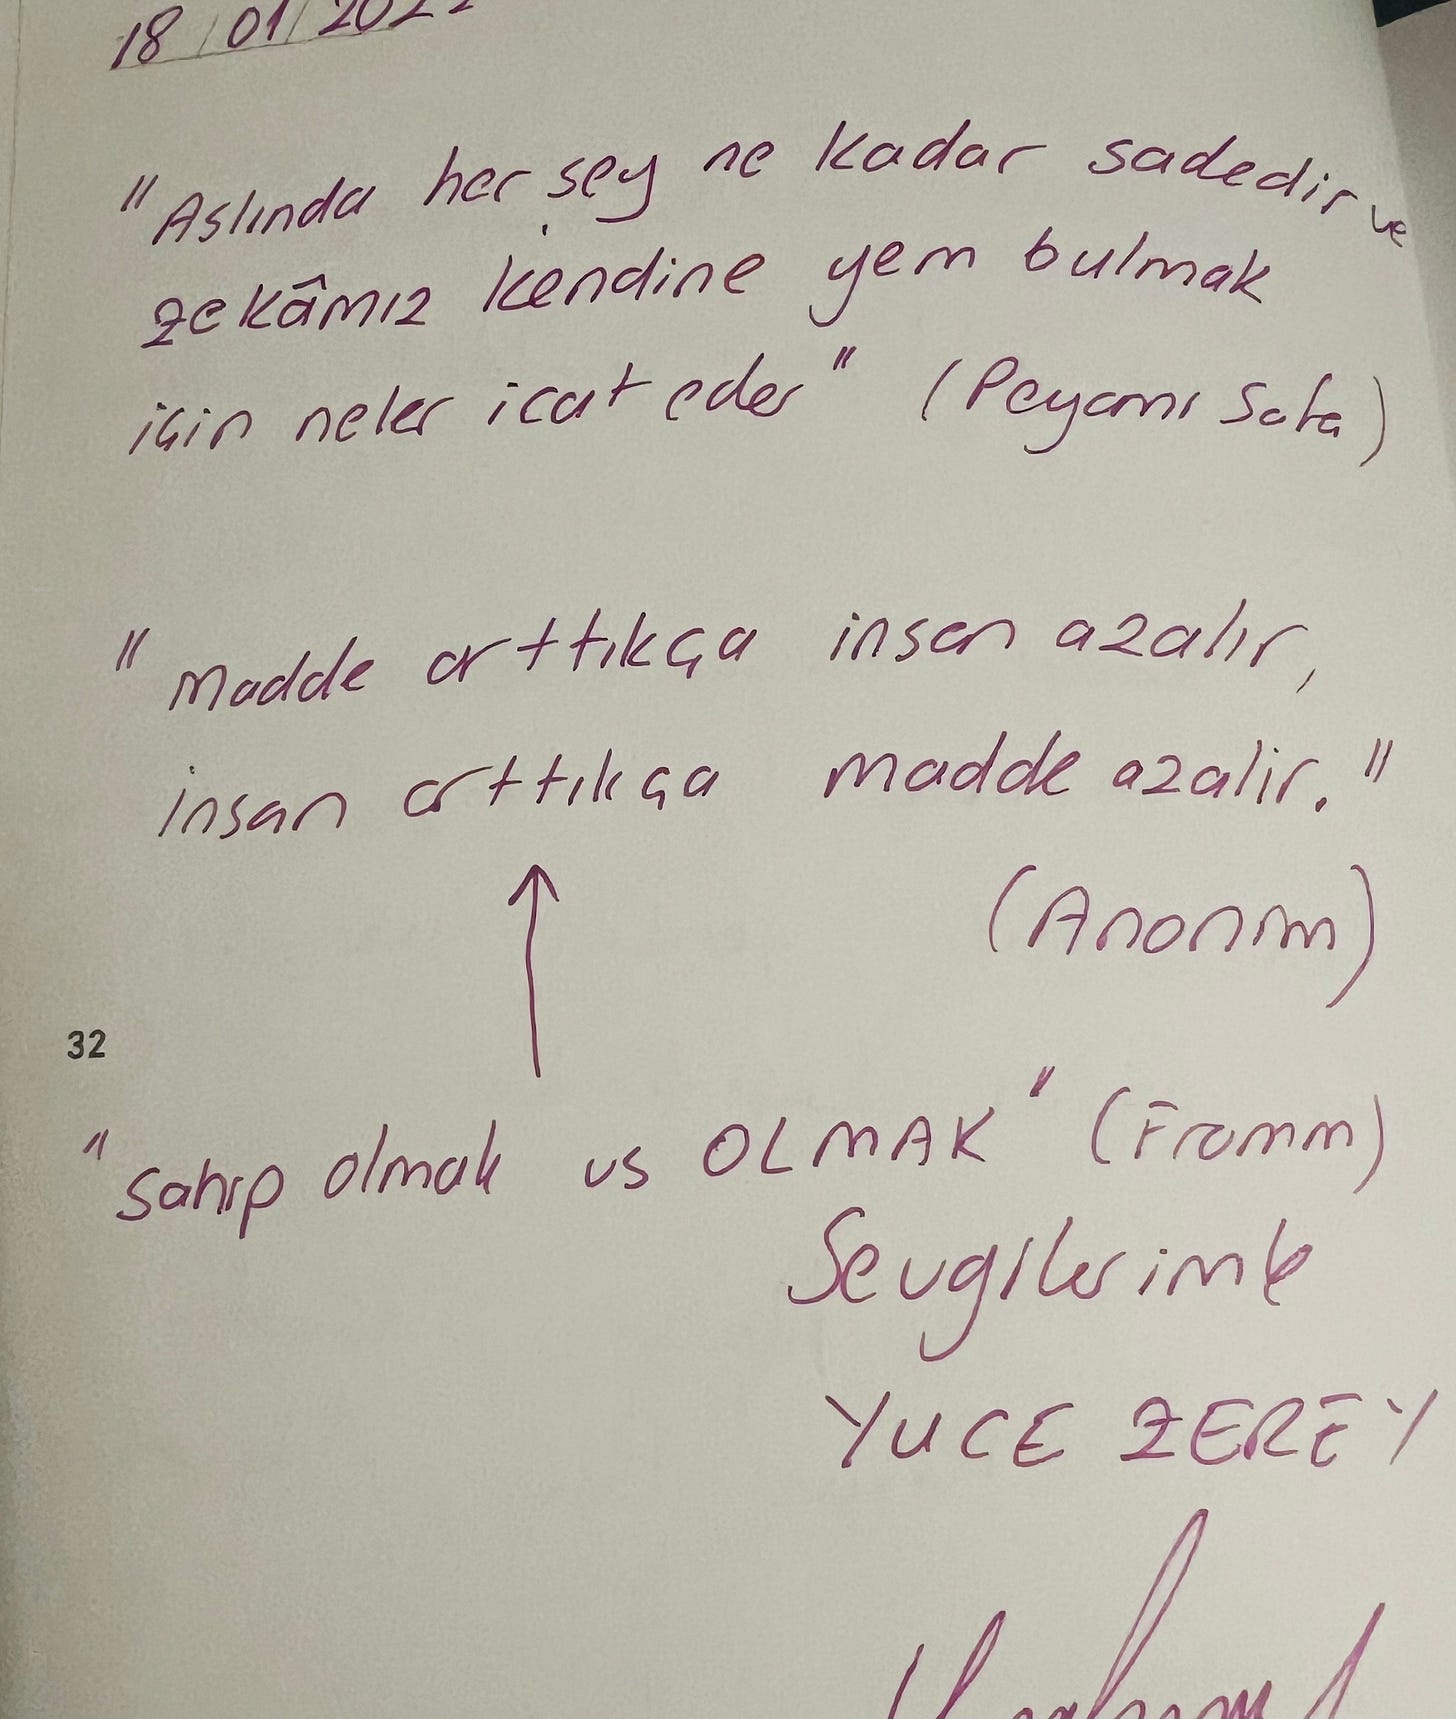 18/01/202
"Aslında her şey ne kadar sadedir ve
zekâmız kendine yem bulmak
için neler icat eder" (Peyami Safa)
"Madde arttıkça insan azalır,
insan arttıkça madde azalır."
(Anonim)
32
"Sahip olmak vs OLMAK" (Fromm)
Sevgilerimle
YUCE ZEREY